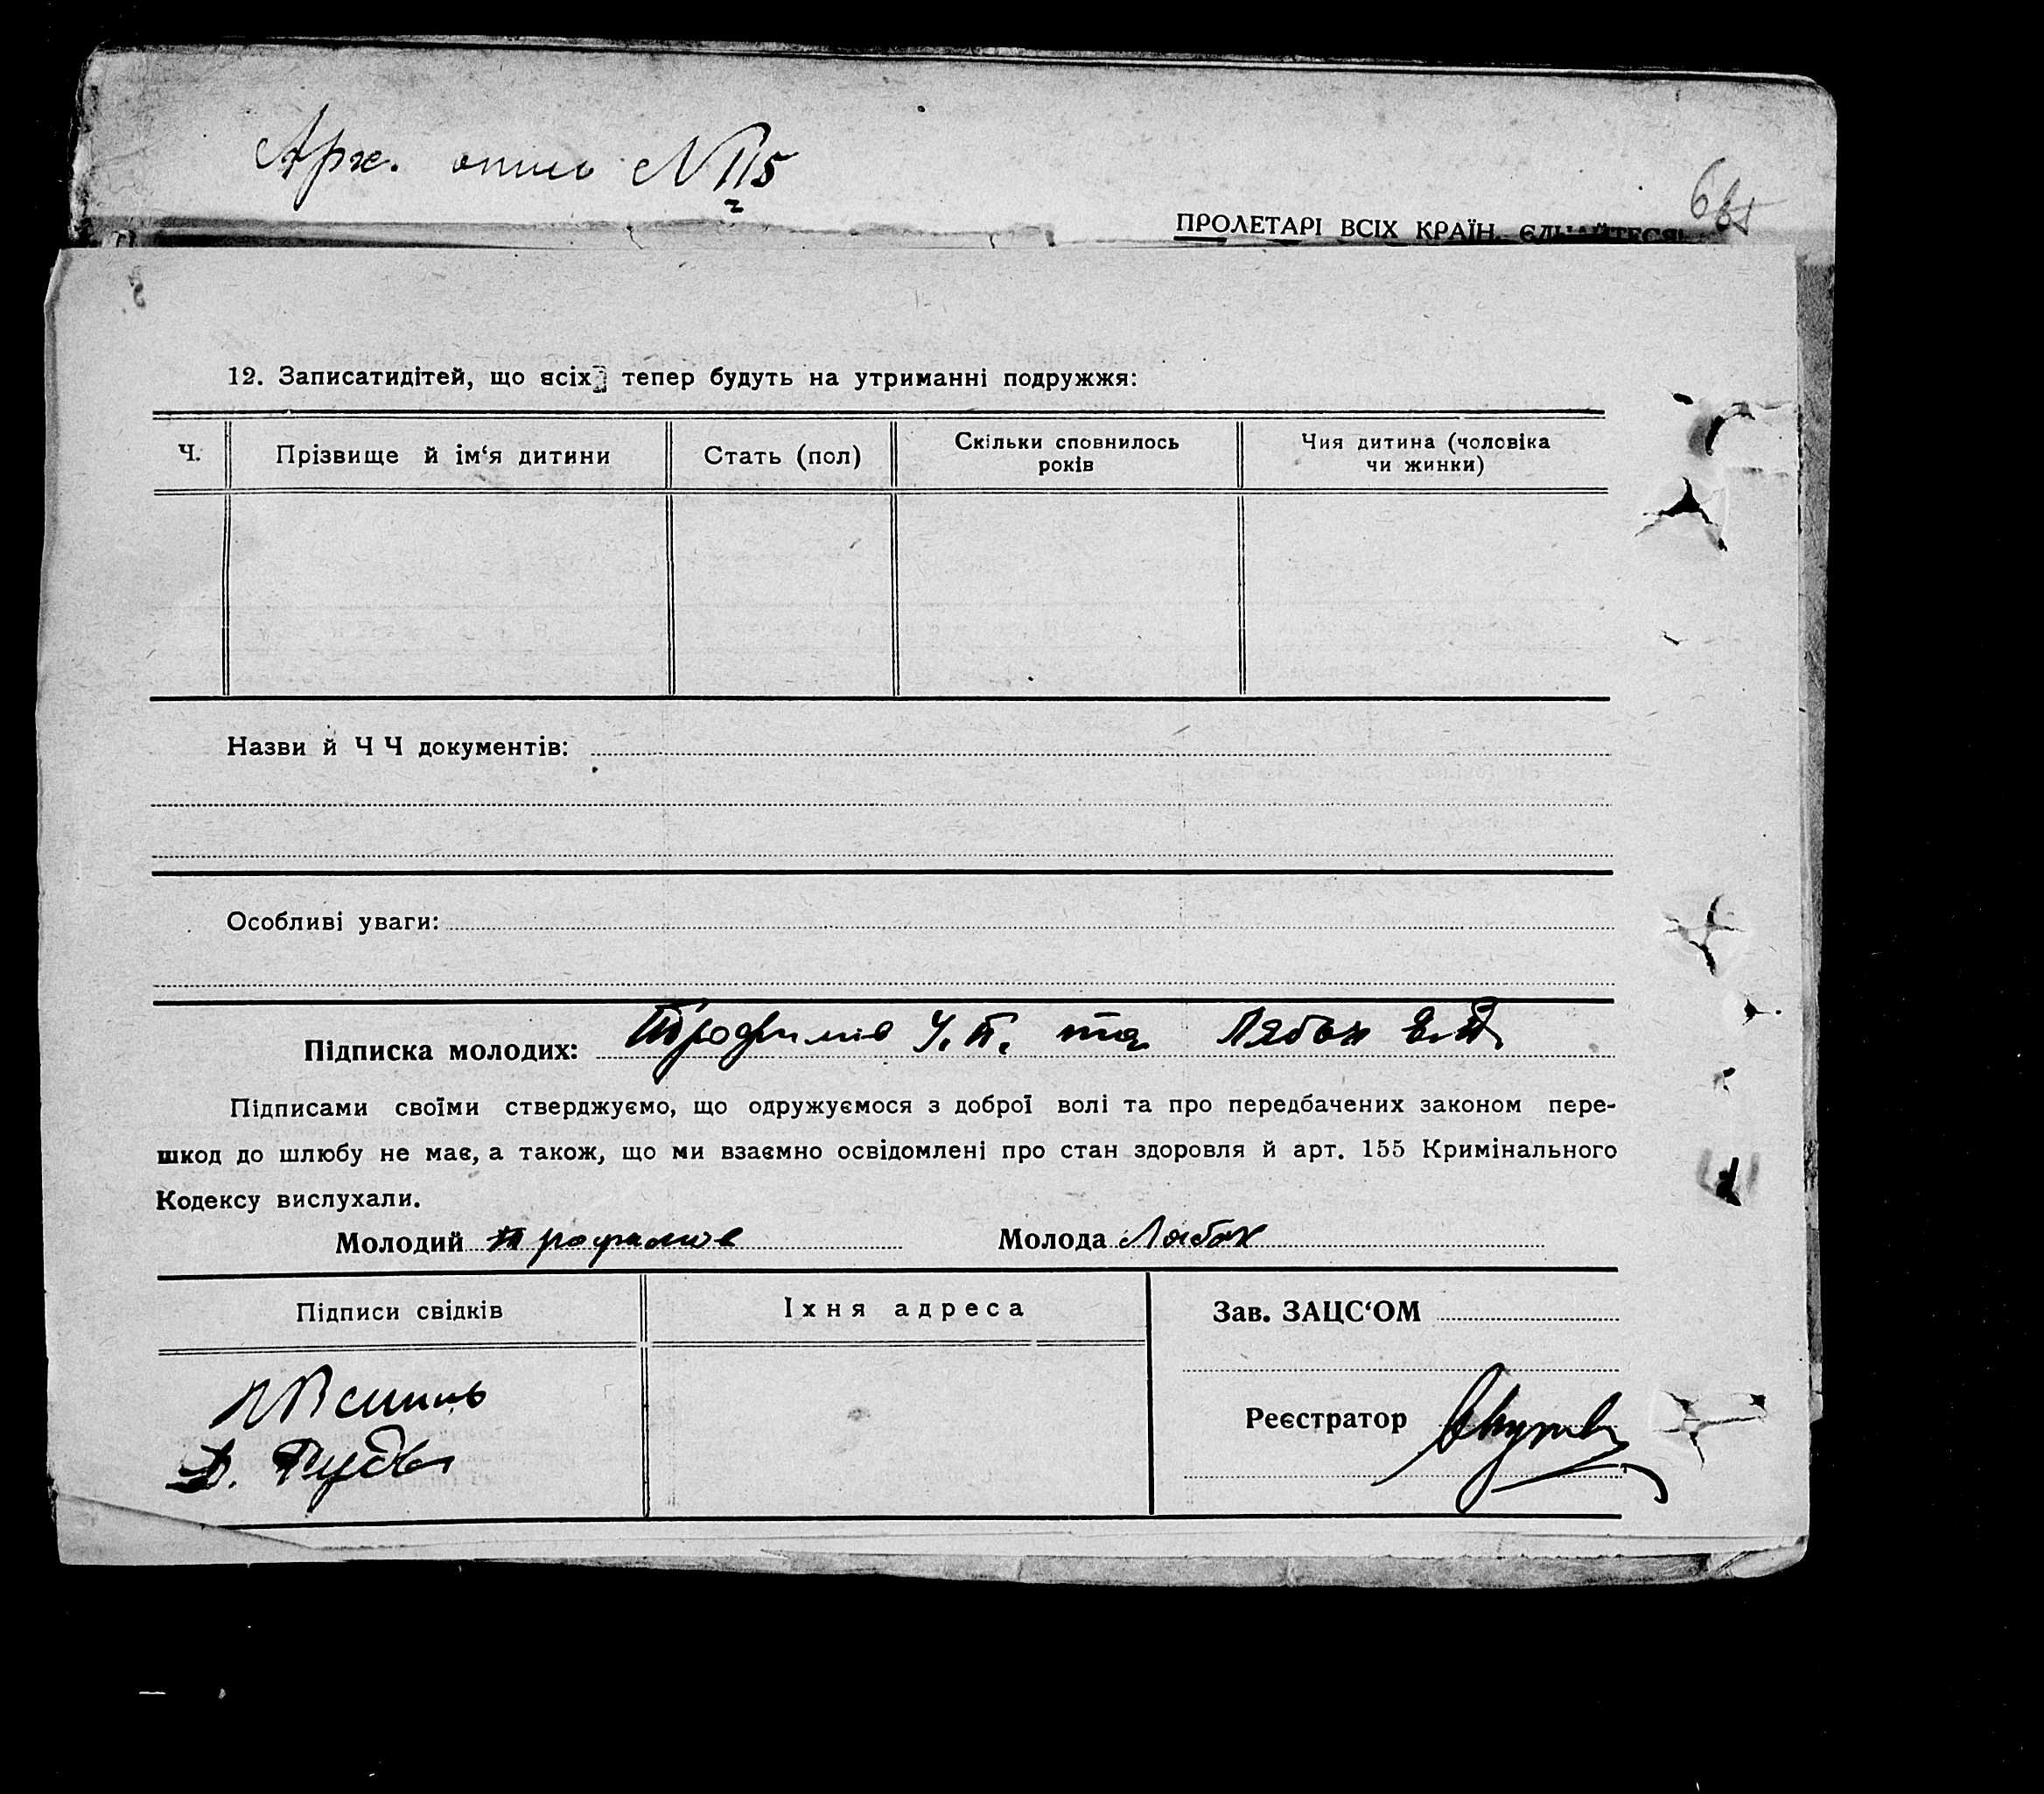 Арх. опись № 115
ПРОЛЕТАРІ ВСІХ КРАЇН, ЄДНАЙТЕСЯ!
12. Записатидітей, що всіх тепер будуть на утриманні подружжя:
Ч. Прізвище й ім‘я дитини Стать (пол) Скільки сповнилось років Чия дитина (чоловіка чи жинки)
Назви й Ч Ч документів:
Особливі уваги:
Підписка молодих: Трофимів У. П. та Лябах
Підписами своїми стверджуємо, що одружуємося з доброї волі та про передбачених законом пере-
шкод до шлюбу не має, а також, що ми взаємно освідомлені про стан здоровля й арт. 155 Кримінального
Кодексу вислухали.
Молодий Трофимів Молода Лябах
Підписи свідків Їхня адреса Зав. ЗАЦС‘ОМ
Реєстратор